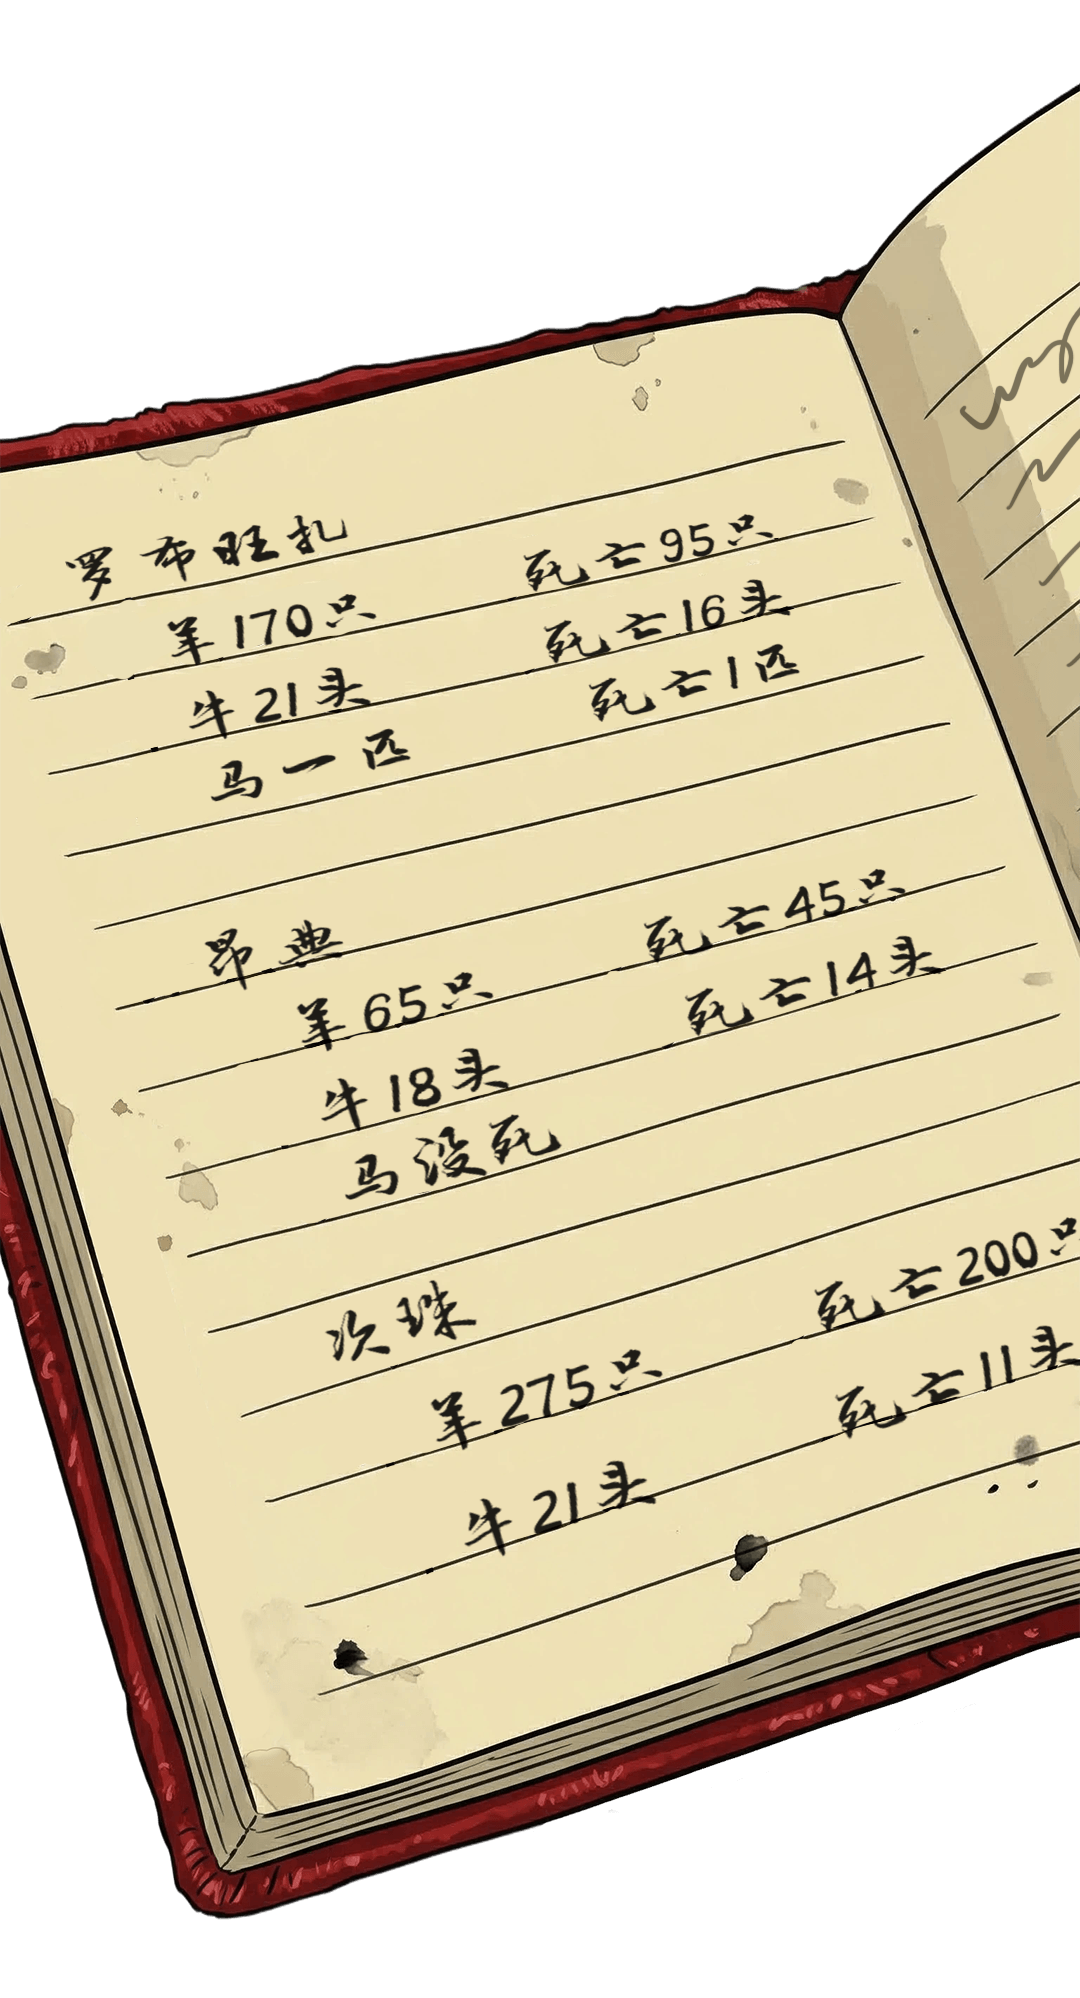 罗布旺扎
羊170只 死亡95只
牛21头 死亡16头
马一匹 死亡1匹
昂典
羊65只 死亡45只
牛18头 死亡14头
马没死
次珠
羊275只 死亡200只
牛21头 死亡11头